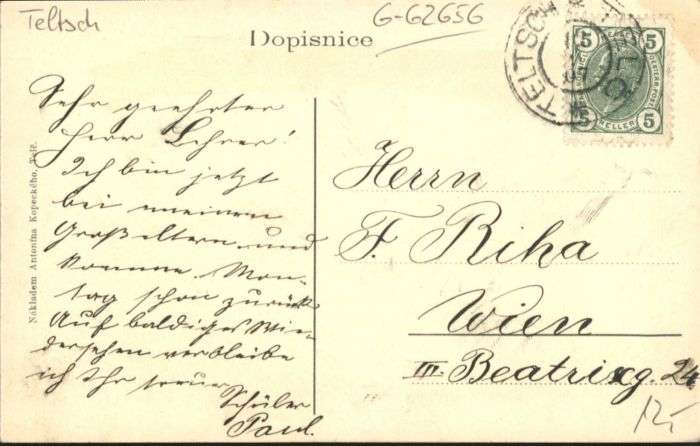 Teltsch
G-62656
Dopisnice
TELTSCH
5 5
5 HELLER 5
Sehr geehrter
Herr Lehrer!
Ich bin jetzt
bei meinen
Großeltern und
komme Mon-
tag schon zurück
Auf baldiges Wie-
dersehen verbleibe
ich Ihr treuer
Schüler
Paul.
Nákladem Antonína Kopeckého, Telč.
Herrn
F. Riha
Wien
III. Beatrixg. 24
12,-